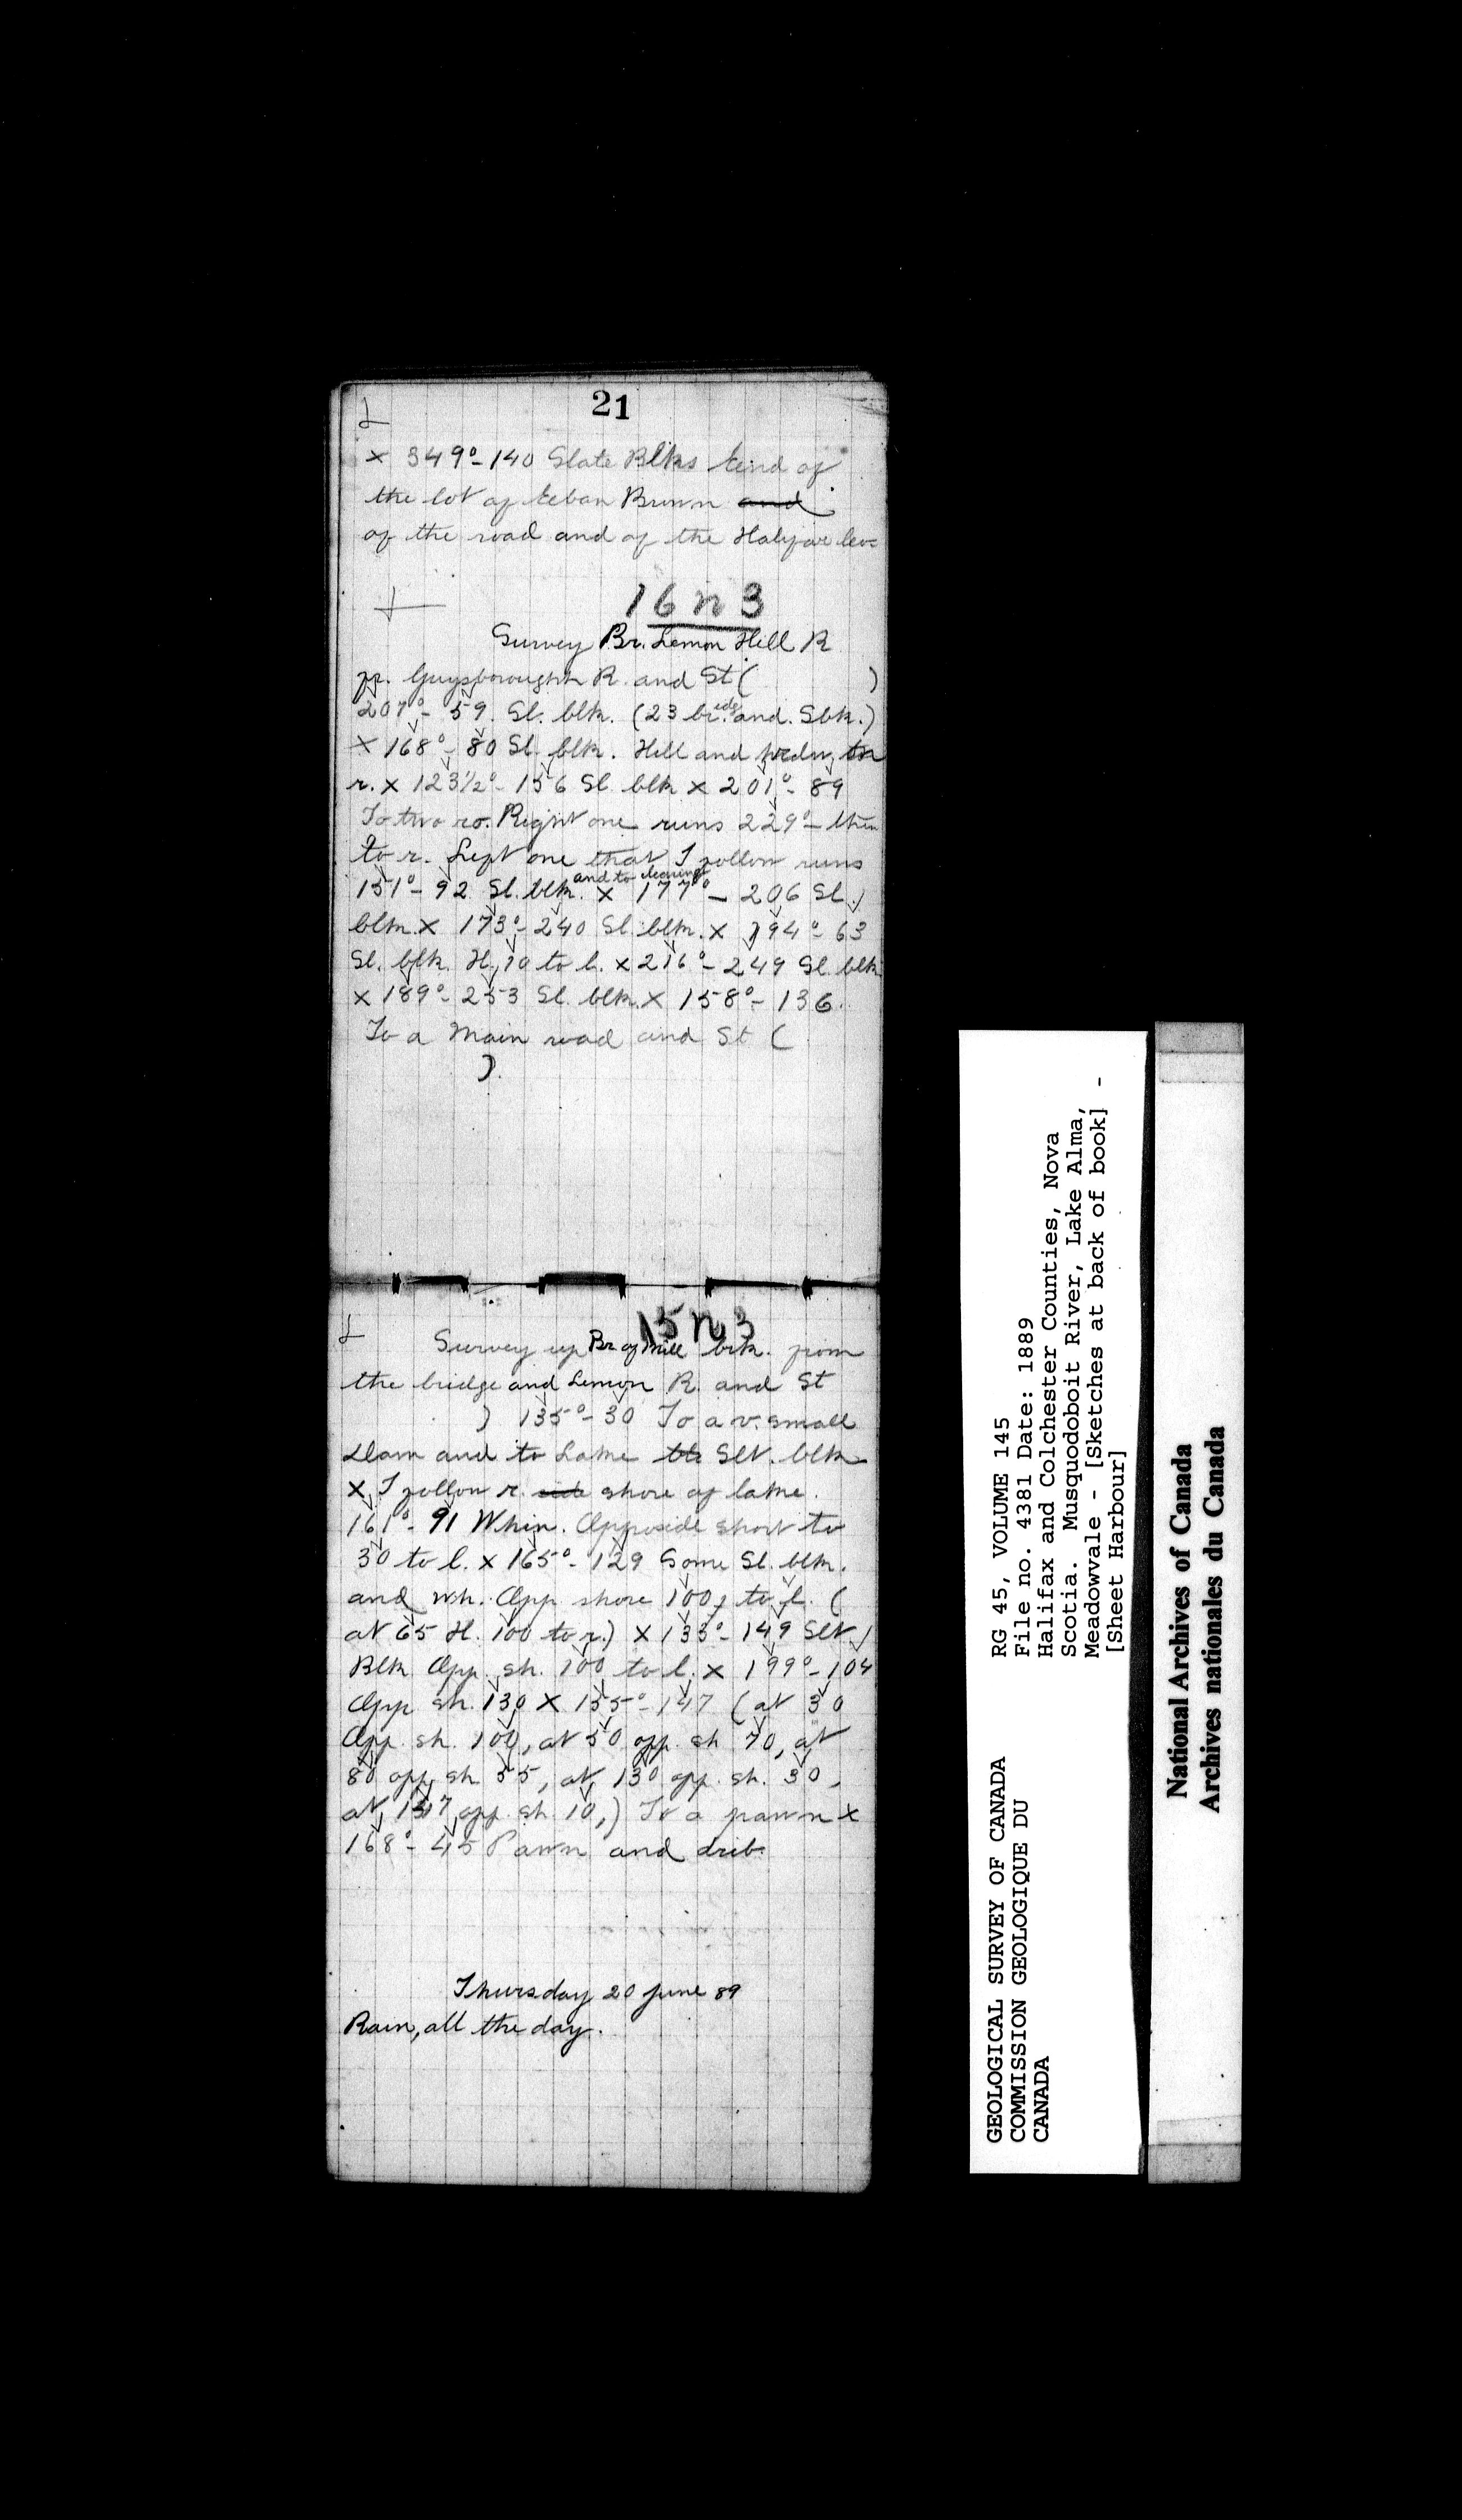 21
× 349°-140 Slate Blks End of
the lot of Eeban Brown and
of the road and of the Halifax
16 n 3
Survey Br. Lemon Hill R
fr. Guysborough R. and St ( )
207°- 59. Sl. blk. (23 and. Sbk.)
× 168°- 80 Sl. blk. Hill and to
r. × 123½°- 156 Sl. blk × 201°- 89
To two ro. Right one runs 229°- then
to r. Left one that I follow runs
and to clearing
151°- 92 Sl. blk. × 177°- 206 Sl.
blk. × 173°- 240 Sl. blk. × 194°- 63
Sl. blk. H. 10 to l. × 216°- 249 Sl. blk
× 189°- 253 Sl. blk. × 158°- 136.
To a Main road and St (
).
15 n 3
Survey up Br of Mill brk. from
the bridge and Lemon R. and St
) 135°- 30 To a v. small
Dam and to Lake Slt. blk
× I follow r. side shore of lake.
161°- 91 Whin. Opposide short to
30 to l. × 165°- 129 Some Sl. blk.
and wh. Opp shore 100, to l. (
at 65 H. 100 to r.) × 133°- 149 Slt
Blk Opp. sh. 100 to l. × 199°- 104
Opp sh. 130 × 155°- 147 (at 30
Opp. sh. 100, at 50 opp. sh 70, at
80 opp. sh 55, at 130 opp. sh. 30,
at 147 opp. sh. 10,) To a pawn ×
168°- 45 Pawn and
Thursday 20 June 89
Rain, all the day.
GEOLOGICAL SURVEY OF CANADA
COMMISSION GEOLOGIQUE DU
CANADA
RG 45, VOLUME 145
File no. 4381 Date: 1889
Halifax and Colchester Counties, Nova
Scotia. Musquodoboit River, Lake Alma,
Meadowvale - [Sketches at back of book] -
[Sheet Harbour]
National Archives of Canada
Archives nationales du Canada